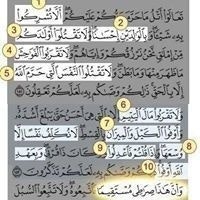 1
تَعَالَوْا أَتْلُ مَا حَرَّمَ رَبُّكُمْ عَلَيْكُمْ أَلَّا تُشْرِكُوا
2
بِهِ شَيْئًا وَبِالْوَالِدَيْنِ إِحْسَانًا وَلَا تَقْتُلُوا أَوْلَادَكُم
3
مِّنْ إِمْلَاقٍ نَّحْنُ نَرْزُقُكُمْ وَإِيَّاهُمْ وَلَا تَقْرَبُوا الْفَوَاحِشَ
4
مَا ظَهَرَ مِنْهَا وَمَا بَطَنَ وَلَا تَقْتُلُوا النَّفْسَ الَّتِي حَرَّمَ اللَّهُ
5
إِلَّا بِالْحَقِّ ذَٰلِكُمْ وَصَّاكُم بِهِ لَعَلَّكُمْ تَعْقِلُونَ
6
وَلَا تَقْرَبُوا مَالَ الْيَتِيمِ إِلَّا بِالَّتِي هِيَ أَحْسَنُ حَتَّىٰ يَبْلُغَ أَشُدَّهُ
7
وَأَوْفُوا الْكَيْلَ وَالْمِيزَانَ بِالْقِسْطِ لَا نُكَلِّفُ نَفْسًا إِلَّا
8
وُسْعَهَا وَإِذَا قُلْتُمْ فَاعْدِلُوا وَلَوْ كَانَ ذَا قُرْبَىٰ وَبِعَهْدِ
9
اللَّهِ أَوْفُوا ذَٰلِكُمْ وَصَّاكُم بِهِ لَعَلَّكُمْ تَذَكَّرُونَ
10
وَأَنَّ هَٰذَا صِرَاطِي مُسْتَقِيمًا فَاتَّبِعُوهُ وَلَا تَتَّبِعُوا السُّبُلَ